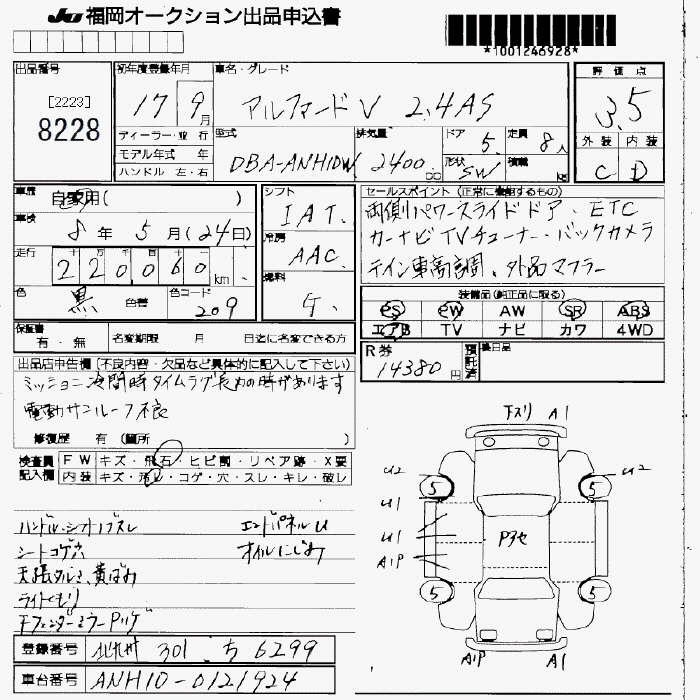 JU 福岡オークション出品申込書
*1001246928*
出品番号
[2223]
8228
初年度登録年月
17 9月
車名・グレード
アルファードV 2.4AS
評価点
3.5
外装 内装
C D
ディーラー・並行
モデル年式 年
ハンドル 左・右
型式
DBA-ANH10W
排気量
2400 cc
ドア 5
形状 SW
定員 8人
積載 kg
車歴
自家用( )
車検
8年 5月(24日)
走行
220060 km
色
黒 色替
色コード
209
シフト
IAT
冷房
AAC
燃料
G
セールスポイント (正常に機能するもの)
両側パワースライドドア、ETC
カーナビTVチューナー・バックカメラ
テイン車高調、外品マフラー
装備品(純正品に限る)
PS PW AW SR ABS
エアB TV ナビ カワ 4WD
保証書
有・無
名変期限 月 日迄に名変できる方
R券
14380円
預託済
後日品
出品店申告欄 (不良内容・欠品など具体的に記入して下さい)
ミッション冷間時タイムラグ長めの時があります
電動サンルーフ不良
修復歴 有 (箇所
検査員記入欄
FW キズ・飛石・ヒビ割・リペア跡・X要
内装 キズ・汚レ・コゲ・穴・スレ・キレ・破レ
ハンドル・シフトノブスレ エンドパネルU
シートコゲ穴 オイルにじみ
天張タルミ、黄ばみ
ライトくもり
下スリ A1
U2 U2
5 5
U1
U1
A1P
Pヌセ
5 5
A1P A1
登録番号 北九州 301 ち 6299
車台番号 ANH10-0121924